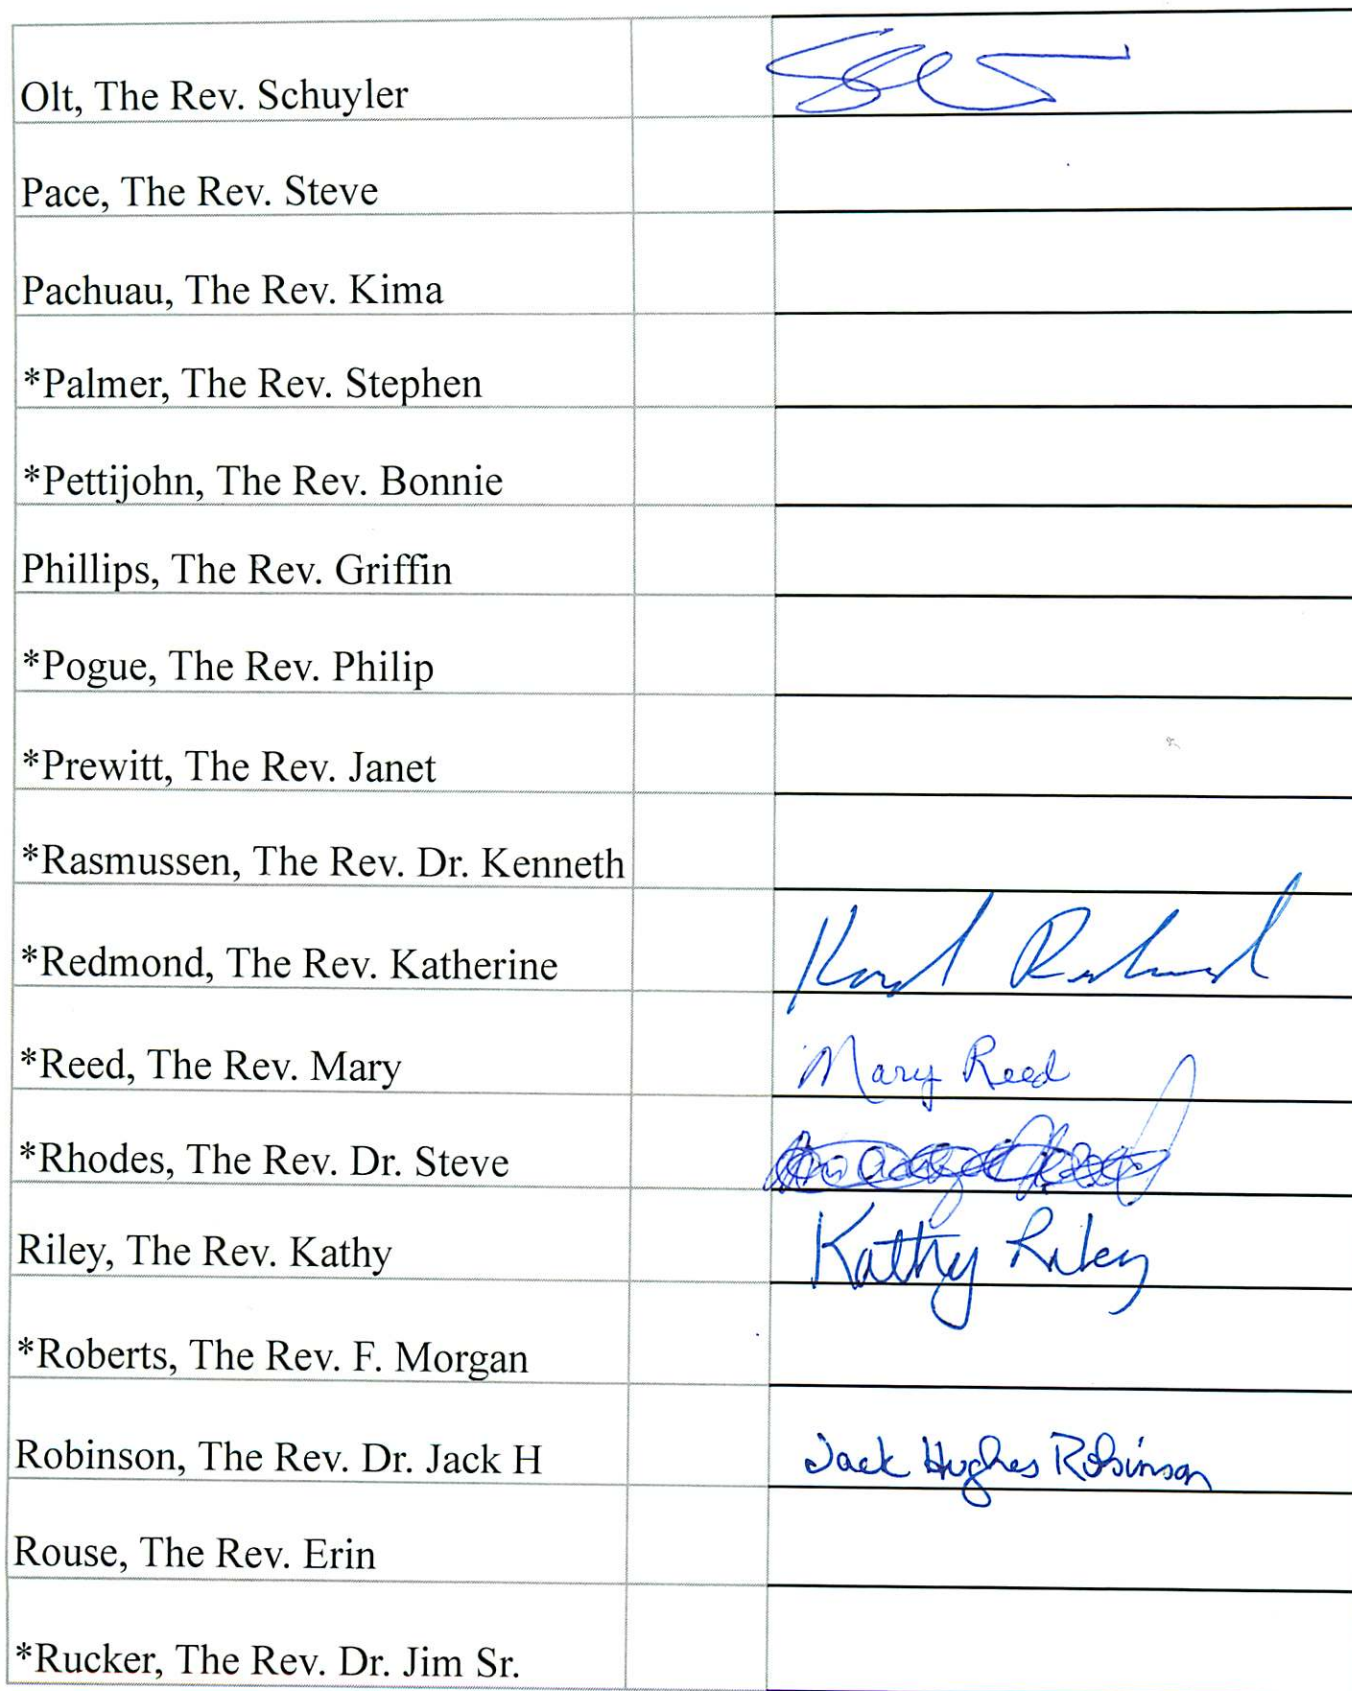 Olt, The Rev. Schuyler
Pace, The Rev. Steve
Pachuau, The Rev. Kima
*Palmer, The Rev. Stephen
*Pettijohn, The Rev. Bonnie
Phillips, The Rev. Griffin
*Pogue, The Rev. Philip
*Prewitt, The Rev. Janet
*Rasmussen, The Rev. Dr. Kenneth
*Redmond, The Rev. Katherine
*Reed, The Rev. Mary Mary Reed
*Rhodes, The Rev. Dr. Steve
Riley, The Rev. Kathy Kathy Riley
*Roberts, The Rev. F. Morgan
Robinson, The Rev. Dr. Jack H Jack Hughes Robinson
Rouse, The Rev. Erin
*Rucker, The Rev. Dr. Jim Sr.